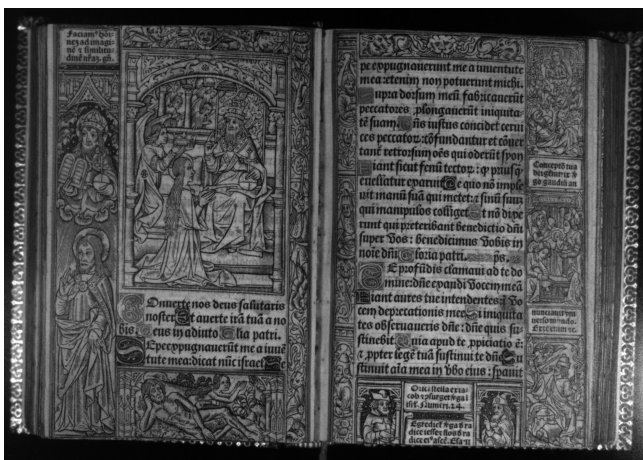 Faciamꝰ homi
nez ad imagi
nē ⁊ similitu
dinē nr̄az. gñ.
Onuerte nos deus salutaris
noster. Et auerte irā tuā a no
bis. Deus in adiuto Glia patri.
Sepe expugnauerūt me a iuuē
tute mea: dicat nūc israel. Se
pe expugnauerunt me a iuuentute
mea: etenim non potuerunt michi.
Supra dorsum meū fabricauerūt
peccatores: ꝓlongauerūt iniquita
tē suam. Dñs iustus concidet cerui
ces peccatoꝝ: cōfundantur et cōuer
tant̄ retrorsum oēs qui oderūt syon
Fiant sicut fenū tectoꝝ: qꝫ priusqꝫ
euellatur exaruit. De quo nō imple
uit manū suā qui metet: ⁊ sinū suū
qui manipulos colliget. Et nō dixe
runt qui preteribant benedictio dñi
super vos: benedicimus vobis in
noīe dñi. Gloria patri. ps.
De profūdis clamaui ad te do
mine: dñe exaudi vocem meā
Fiant aures tue intendentes: ī vo
cem deprecationis mee. Si iniquita
tes obseruaueris dñe: dñe quis su
stinebit. Quia apud te ꝓpiciatio ē:
⁊ ꝓpter legē tuā sustinui te dñe. Su
stinuit aīa mea in v̄bo eius: sperauit
Conceptō tua
dei genitrix v̓
gō gaudiū an
nunciauit vni
uerso mūdo.
Oriet̄ stella ex ia
cob ⁊ surget v̓ga ī
isrl̄. Numeri. 24.
Egrediet̄ v̓ga d̓ ra
dice iesse: ⁊ flos d̓ ra
dice eiꝰ ascē. Esa. 11